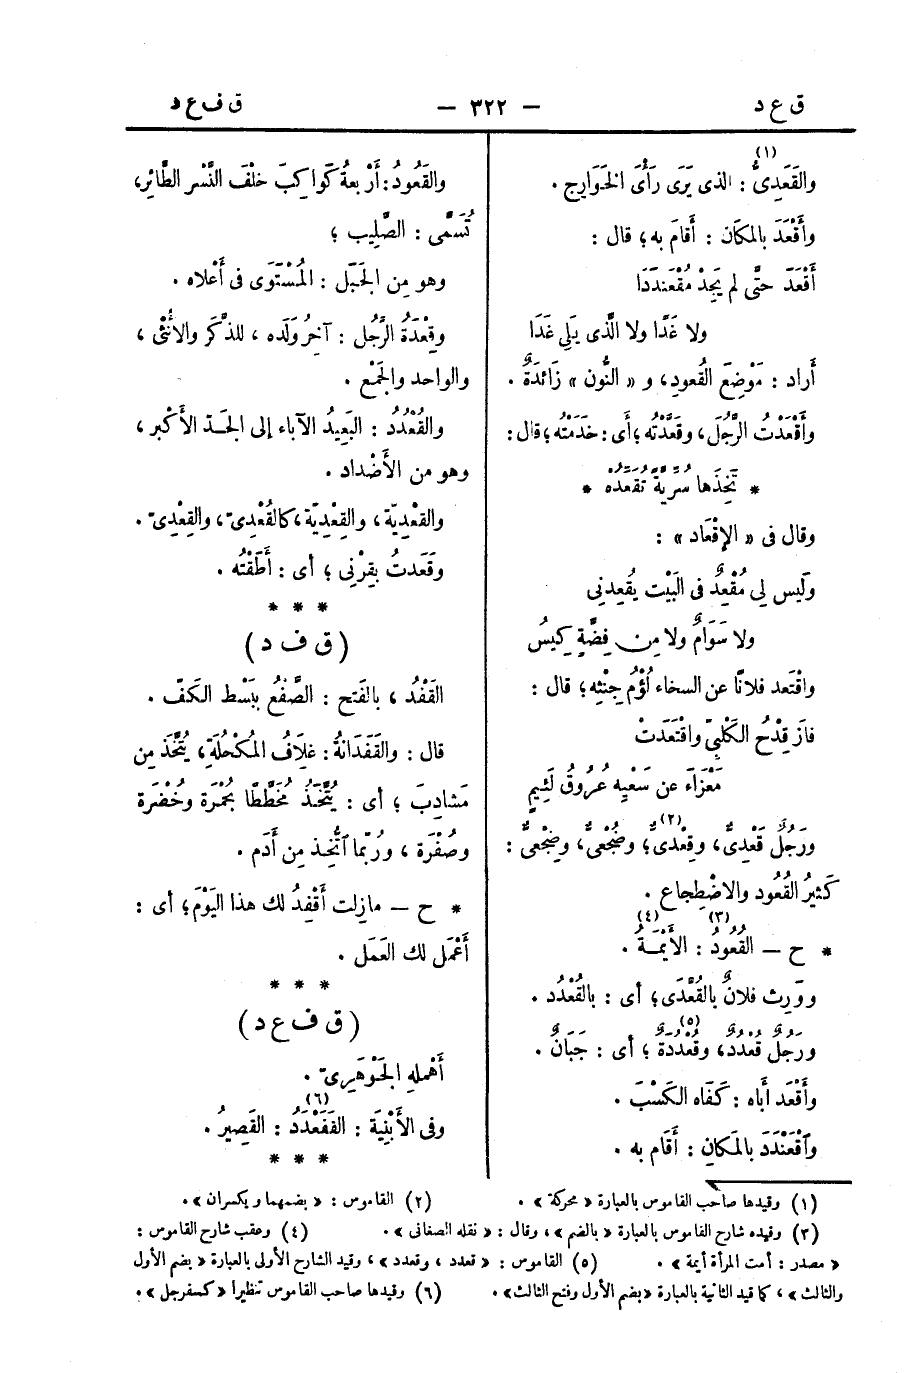 ق ع د
— ٣٢٢ —
ق ف ع د
والقَعَدِىُّ(١) : الذى يَرَى رَأْىَ الخَوَارِج .
وأَقْعَدَ بالمكَان : أَقامَ به ؛ قال :
أَقْعَدَ حتَّى لم يَجِدْ مُقْعَنْدَدَا
ولا غَدًا ولا الَّذى يَلِى غَدَا
أَراد : مَوْضِعَ القُعودِ ، و « النُّون » زَائدَةٌ .
وأَقْعَدْتُ الرَّجُلَ ، وقَعَدْتُه ؛ أَى : خدَمْتُه ؛ قال :
* تَخِذَها سُرِّيَّةً تُقَعِّدُه *
وقال فى « الإِقْعَاد » :
ولَيس لِى مُقْعِدٌ فى البَيْت يُقعِدنِى
ولا سَوَامٌ ولا مِن فِضَّةٍ كِيسُ
واقْتَعد فلانًا عن السخاء لُؤْمُ جِنْثِه ؛ قال :
فازَ قِدْحُ الكَلْبِىّ واقْتَعَدَتْ
مَعْزَاءَ عن سَعْيِه عُرُوقُ لَئِيمِ
ورَجُلٌ قُعْدِىٌّ ، وقِعْدِىٌّ(٢) ؛ وضُجْعِىٌّ ، وضِجْعِىٌّ :
كَثيرُ القُعُود والاضْطِجاع .
* ح — القُعُودُ(٣) : الأَيْمَةُ(٤) .
ووَرِث فلانٌ بالقُعْدَى ؛ أى : بالقُعْدُد .
ورَجُلٌ قُعْدُدٌ ، وقُعْدُدَةٌ(٥) ؛ أى : جَبَانٌ .
وأَقْعَد أَباه : كَفَاه الكَسْبَ .
واقْعَنْدَدَ بالمكَانِ : أَقَام به .
والقَعُودُ : أَرْبعةُ كَواكِبَ خلْفَ النَّسْرِ الطَّائرِ ،
تُسَمَّى : الصَّلِيب ؛
وهو مِن الجَبَل : المُسْتَوَى فى أَعْلاه .
وقِعْدَةُ الرَّجُل : آخرُ وَلَده ، للذَّكَر والأُنْثَى ،
والواحد والجَمْع .
والقُعْدُدُ : البَعِيدُ الآباء إلى الجَدّ الأَكْبر ،
وهو من الأَضْداد .
والقُعْدِيّة ، والقِعْدِيّة ، كالقُعْدِىّ ، والقِعْدِىّ .
وقَعَدتُ بقِرْنِى ؛ أى : أَطَقْتُه .
* * *
(ق ف د)
القَفْدُ ، بالفَتح : الصَّفْعُ ببَسْط الكَفّ .
قال : والقَفَدَانةُ : غِلَافُ المُكْحُلَةِ ، يُتَّخَذ مِن
مَشَاوِبَ ؛ أى : يُتَّخَذُ مُخَطَّطًا بحُمْرة وخُضْرَة
وصُفْرَة ، ورُبّما اتُّخِذ مِن أَدَم .
* ح — مازِلت أَقْفِدُ لك هذا اليَوْمَ ؛ أى :
أَعْمَل لك العَمَل .
* * *
(ق ف ع د)
أَهْمله الجَوْهَرِىّ .
وفى الأَبْنِيَة : القَفَعْدَدُ(٦) : القَصِيرُ .
* * *
(١) وقيدها صاحب القاموس بالعبارة « محركة » .
(٢) القاموس : « بضمهما ويكسران » .
(٣) وقيده شارح القاموس بالعبارة « بالضم » ، وقال : « نقله الصغانى » .
(٤) وعقب شارح القاموس :
« مصدر : أمت المرأة أيمة » .
(٥) القاموس : « قعدد ، وقعدد » ، وقيد الشارح الأولى بالعبارة « بضم الأول
والثالث » ، كما قيد الثانية بالعبارة « بضم الأول وفتح الثالث » .
(٦) وقيدها صاحب القاموس تنظيرا « كسفرجل » .